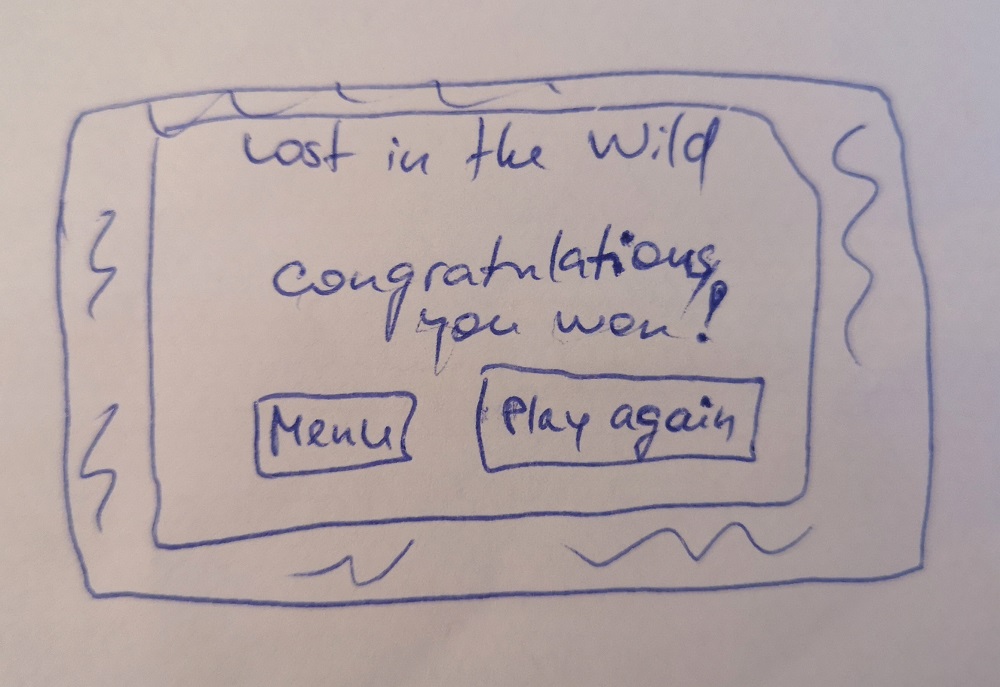 Lost in the Wild
congratulations,
you won!
Menu
Play again